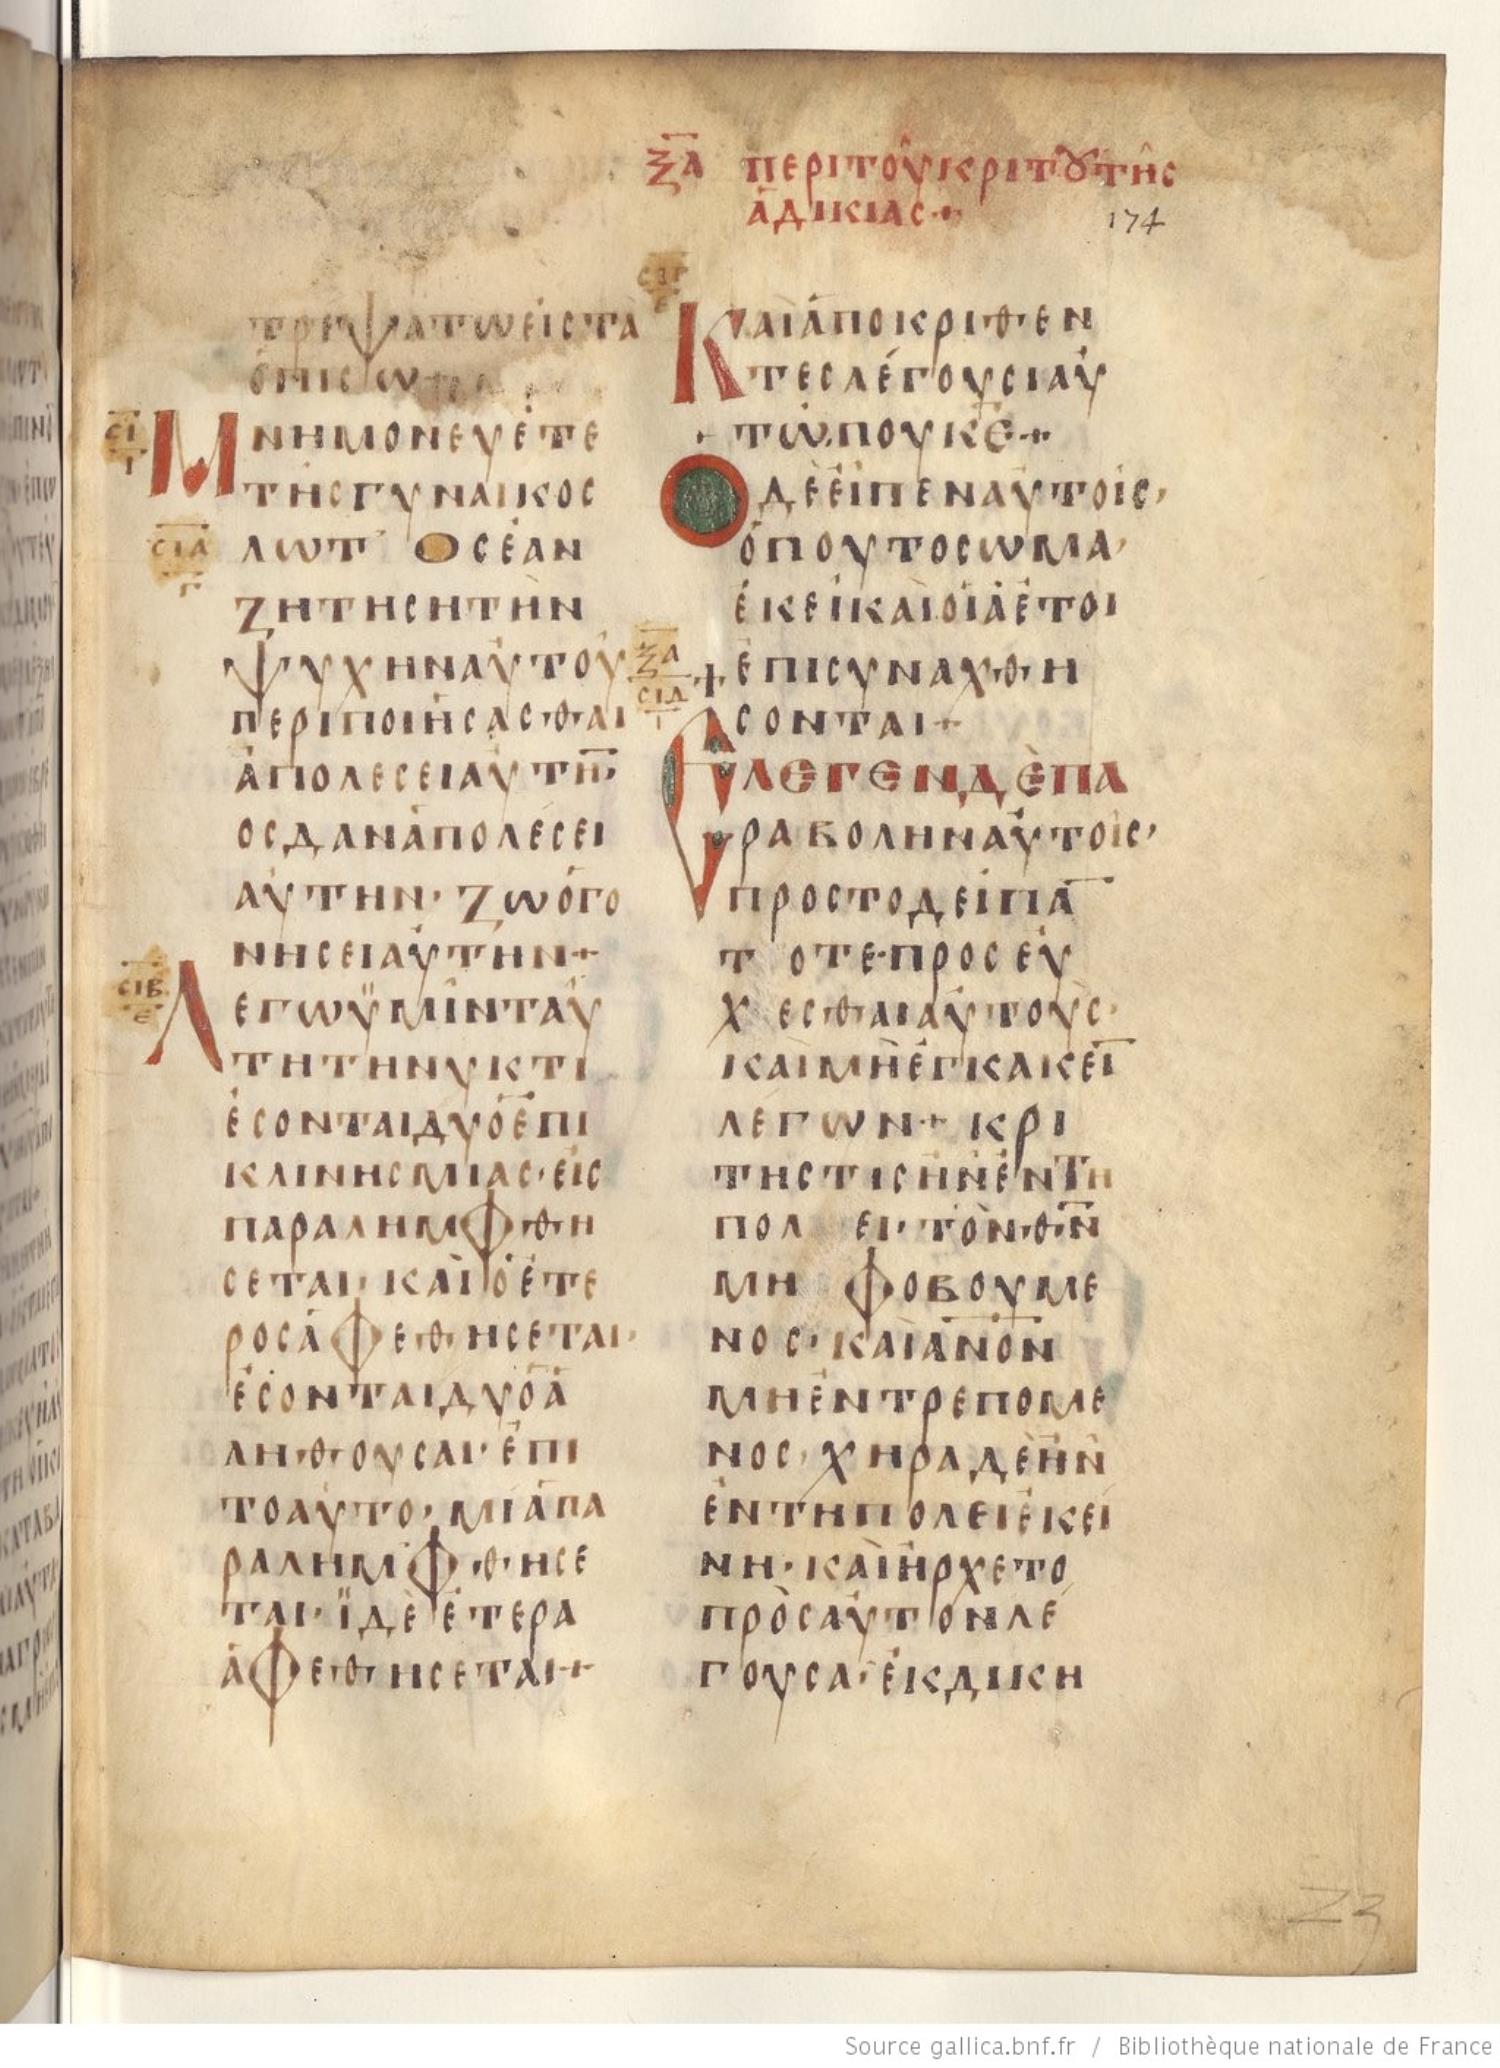 ξα περιτοῦκριτȣτῆς
ἀδικίας·+
174
τρεψατωεἰςτὰ
ὀπισω+
σι
ι
Μνημονεύετε
τῆςγυναικος
σια
γ
λωτ Οςἐὰν
ζητησητὴν
ψυχηναὐτοῦ
περιποιήσασθαι
ἀπολεσειαὐτη̅·
οςδανἀπολέσει
αὐτην· ζωόγο
νησειαὐτην+
σιβ
ε
Λεγωϋμῖνταύ
τητηνυκτι
ἐσονταιδυο̅ἐπι
κλινηςμιας·εἱς
παραλημφθη
σεται· καὶὁἕτε
ροςἀφεθησεται·
ἐσονταιδυο̅ἀ
ληθουσαι·ἐπι
τοαὐτο· μίαπα
ραλημφθησε
ται· ϊδὲἑτερα
ἀφεθησεται+
σιγ
ε
Καὶἀποκριθεν
τεςλέγουσιαὐ
τῶ,πουκ̅ε̅+
Οδὲεἰπεναὐτοῖς,
ὁπουτοσωμα,
ἐκεῖκαὶοἱἀετοι
ἐπισυναχθη
σονται+
ξα
σιδ
ι
ἘλεΓΕΝΔῈΠΑ
ραβοληναὐτοῖς,
προςτοδεῖπα̅
τ οτε·προσεύ
χ εσθαιαὐτοὺς·
καὶμὴἐγκακεῖ̅
λέγων+ κρι
τηςτιςἦνἐντη
πολ ει· τὸνθ̅ν̅
μη φοβουμε
νος· καὶἀ̅ν̅ο̅ν̅
μηἐντρεπομε
νος· χηραδὲἦν
ἐντῆπολειἐκεί
νη· καὶἤρχετο
πρὸςαὐτονλέ
γουσα· ἐκδικη
Source gallica.bnf.fr / Bibliothèque nationale de France